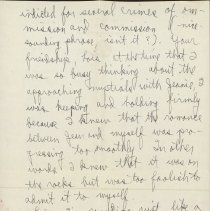 indicted for several crimes of om-
mission and commission (nice
sounding phrase, isn't it?). Your
friendship, hois at the time that I
was so busy thinking about the
approaching nuptials with Jeanie, I
was keeping and holding firmly
because I knew that the romance
between Jean and myself was pro-
gressing too smoothly. In other
words I knew that it was on
the rocks but was too foolish to
admit it to myself.
just like a